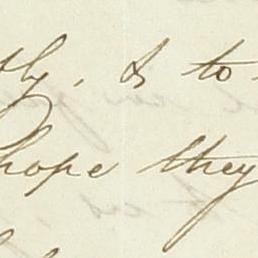 tly, & to
hope they